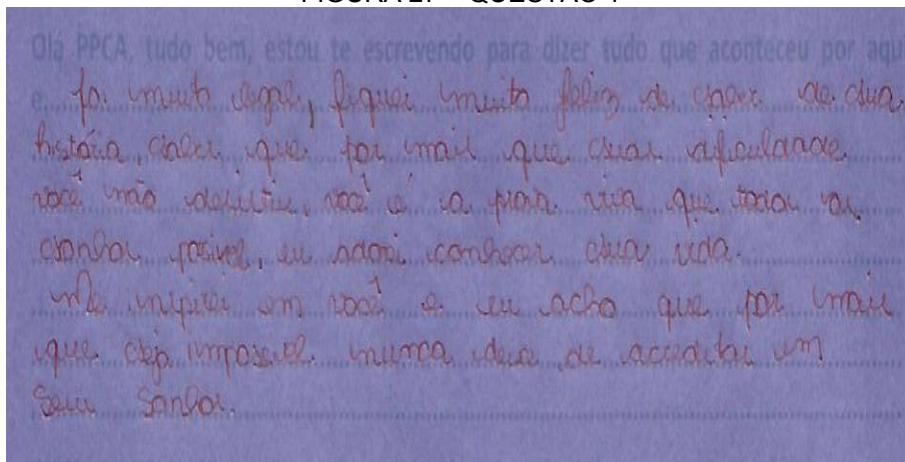 Olá PPCA, tudo bem, estou te escrevendo para dizer tudo que aconteceu por aqui
e foi muito legal, fiquei muito feliz de saber da sua
história, saber que por mais que suas dificuldade
você não desistiu, você é a prova viva que todos os
sonhos posivel, eu adorei conhecer sua vida.
Me inspirei em você e eu acho que por mais
que seja impossivel nunca deixe de acreditar em
Seus Sonhos.